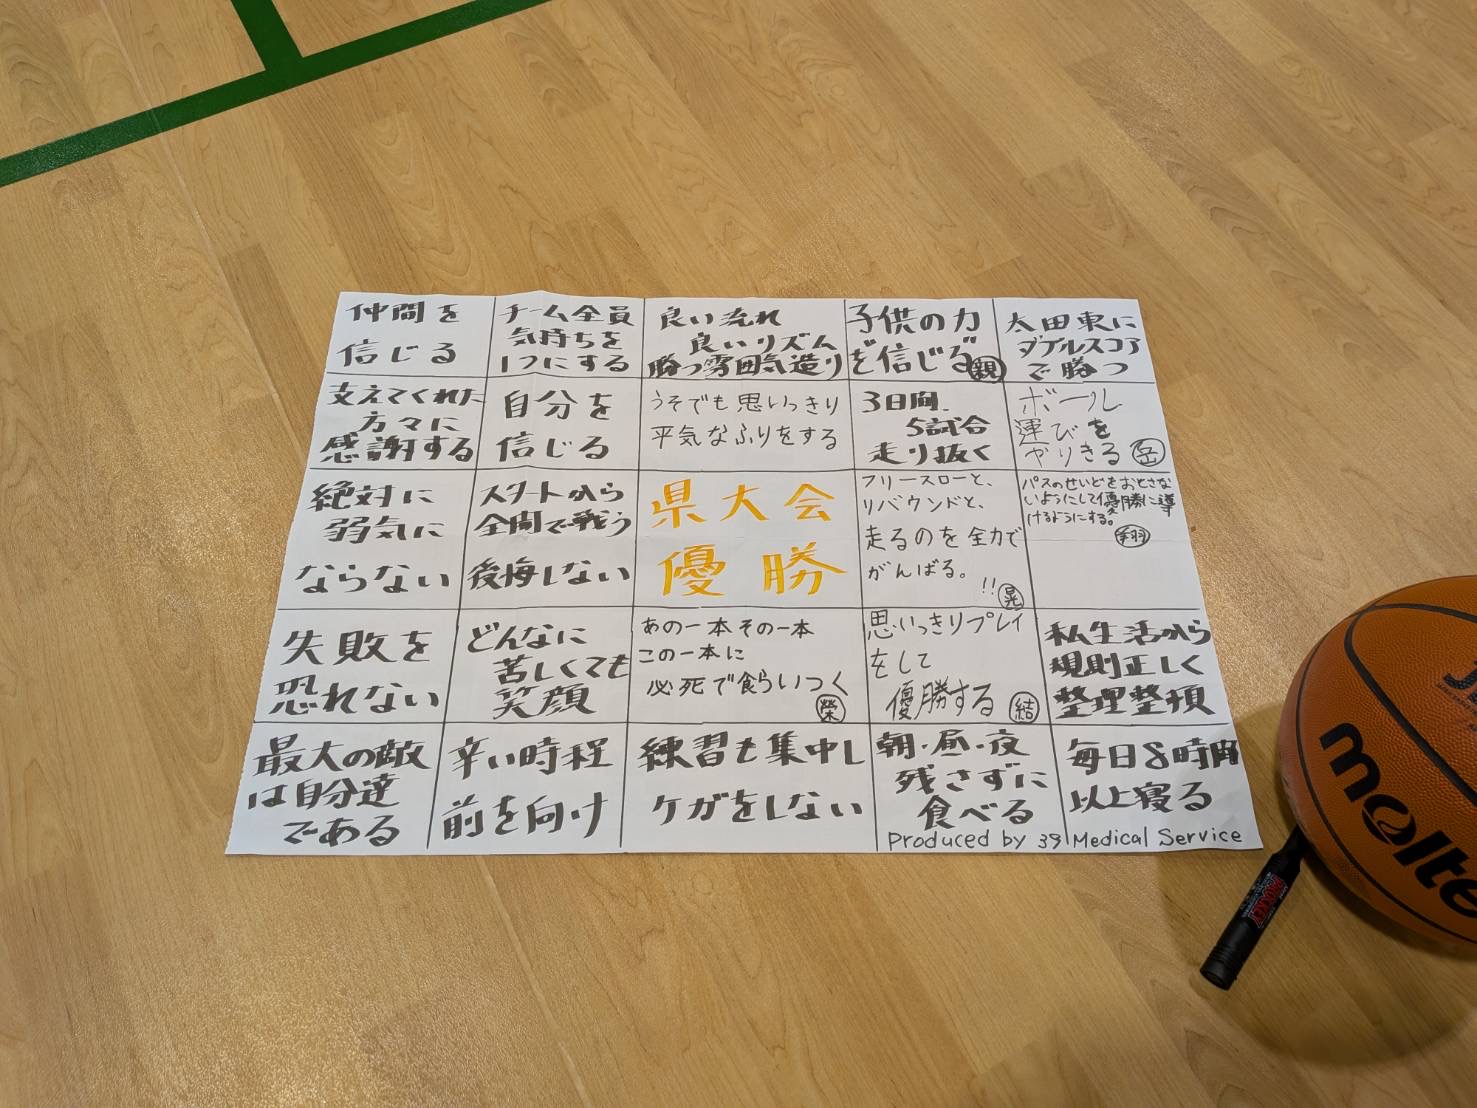 仲間を
信じる
チーム全員
気持ちを
1つにする
良い流れ
良いリズム
勝つ雰囲気造り
子供の力
を信じる 親
太田東に
ダブルスコア
で勝つ
支えてくれた
方々に
感謝する
自分を
信じる
うそでも思いっきり
平気なふりをする
3日間、
5試合
走り抜く
ボール
運びを
やりきる 岳
絶対に
弱気に
ならない
スタートから
全開で戦う
後悔しない
県大会
優勝
フリースローと、
リバウンドと、
走るのを全力で
がんばる。
!! 晃
パスのせいどをおとさな
いようにして優勝に導
けるようにする。
翔
失敗を
恐れない
どんなに
苦しくても
笑顔
あの一本その一本
この一本に
必死で食らいつく
榮
思いっきりプレイ
をして
優勝する 結
私生活から
規則正しく
整理整頓
最大の敵
は自分達
である
辛い時程
前を向け
練習も集中し
ケガをしない
朝・昼・夜
残さずに
食べる
毎日8時間
以上寝る
Produced by 39 Medical Service
molte